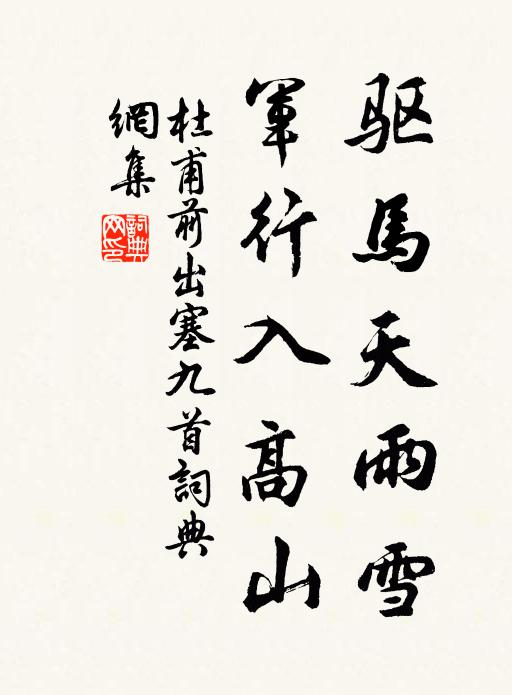 驱馬天雨雪
軍行入高山
杜甫前出塞九首詞典
網集
詞典
网印